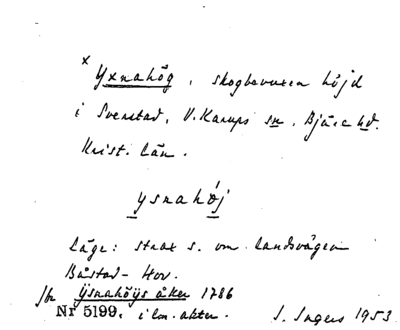 x Yxnahög, skogbevuxen höjd
i Svenstad, V. Karups sn. Bjäre hd.
Krist. län.
ysnahǿj
Läge: strax s. om landsvägen
Båstad - Hov.
Jfr Ysnahöys åker 1786
Nr 5199. i lm. akter. I. Ingers 1953